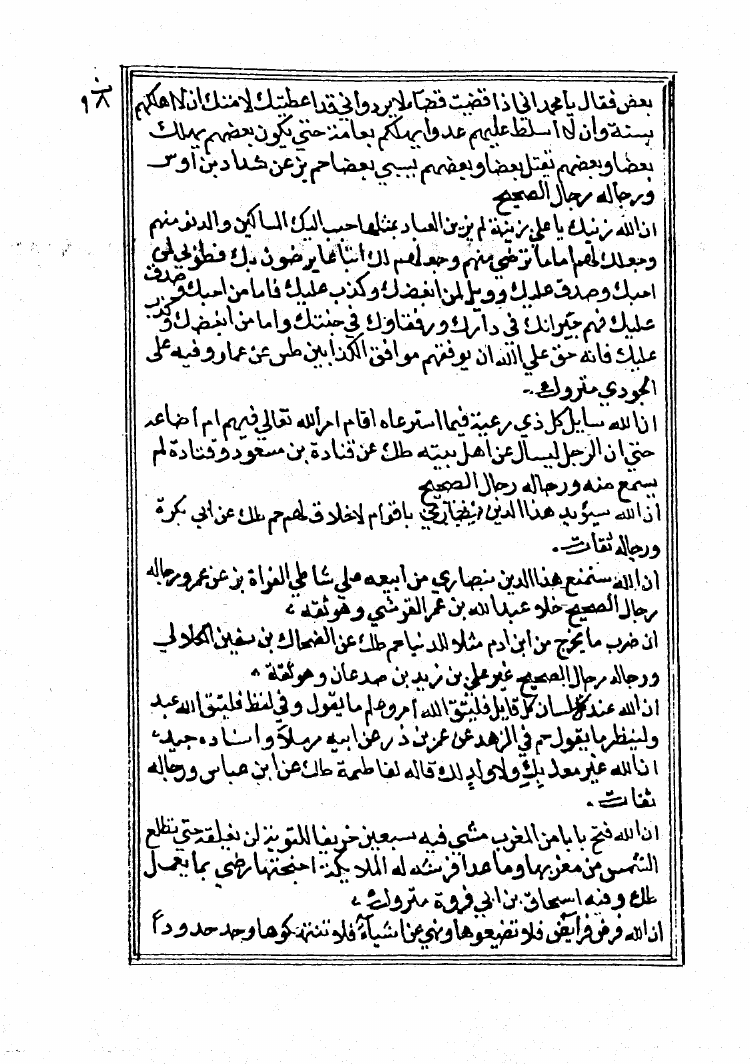 ٩٨
بعض فقال يا محمد اني اذا قضيت قضاء لا يرد واني قد اعطيتك لامتك ان لا اهلكهم
بسنة وان لا اسلط عليهم عدوا يهلكهم بعامة حتي يكون بعضهم يهلك
بعضا وبعضهم يقتل بعضا وبعضهم يسبي بعضا حم بز عن شداد بن اوس
ورجاله رجال الصحيح
ان الله زينك يا علي بزينة لم يزين العباد بمثلها حبب اليك المساكين والدنو منهم
وجعلك لهم اماما ترضي بهم وجعلهم لك اتباعا يرضون بك فطوبي لمن
احبك وصدق عليك وويل لمن ابغضك وكذب عليك فاما من احبك وصدق
عليك فهم جيرانك في دارك ورفقاؤك في جنتك واما من ابغضك وكذب
عليك فانه حق علي الله ان يوقفهم موقف الكذابين طس عن عمار وفيه علي
الجودي متروك
ان الله سايل كل ذي رعية فيما استرعاه اقام امر الله تعالي فيهم ام اضاعه
حتي ان الرجل ليسال عن اهل بيته طك عن قتادة بن مسعود وقتادة لم
يسمع منه ورجاله رجال الصحيح
ان الله سيؤيد هذا الدين باقوام لا خلاق لهم حم طك عن ابي بكرة
ورجاله ثقات
ان الله سيمنع هذا الدين بنصاري من ربيعة علي شاطي الفراة بز عن عمر ورجاله
رجال الصحيح خلا عبد الله بن عمر القرشي وهو ثقة
ان ضرب ما يخرج من ابن ادم مثلا للدنيا حم طك عن الضحاك بن سفين الكلابي
ورجاله رجال الصحيح غير علي بن زيد بن جدعان وهو ثقة
ان الله عند لسان كل قايل فليتق الله امرو علم ما يقول وفي لفظ فليتق الله عبد
ولينظر ما يقول حم في الزهد عن عمر بن ذر عن ابيه مرسلا واسناده جيد
ان الله غير معذبك ولا ولدك قاله لفاطمة طك عن ابن عباس ورجاله
ثقات
ان الله فتح بابا من المغرب مشي فيه سبعين خريفا للتوبة لن يغلقه حتي تطلع
الشمس من مغربها وما غدا فرشت له الملايكة اجنحتها رضي بما يعمل
طك وفيه اسحاق بن ابي فروة متروك
ان الله فرض فرايض فلا تضيعوها ونهي عن اشياء فلا تنتهكوها وحد حدودا